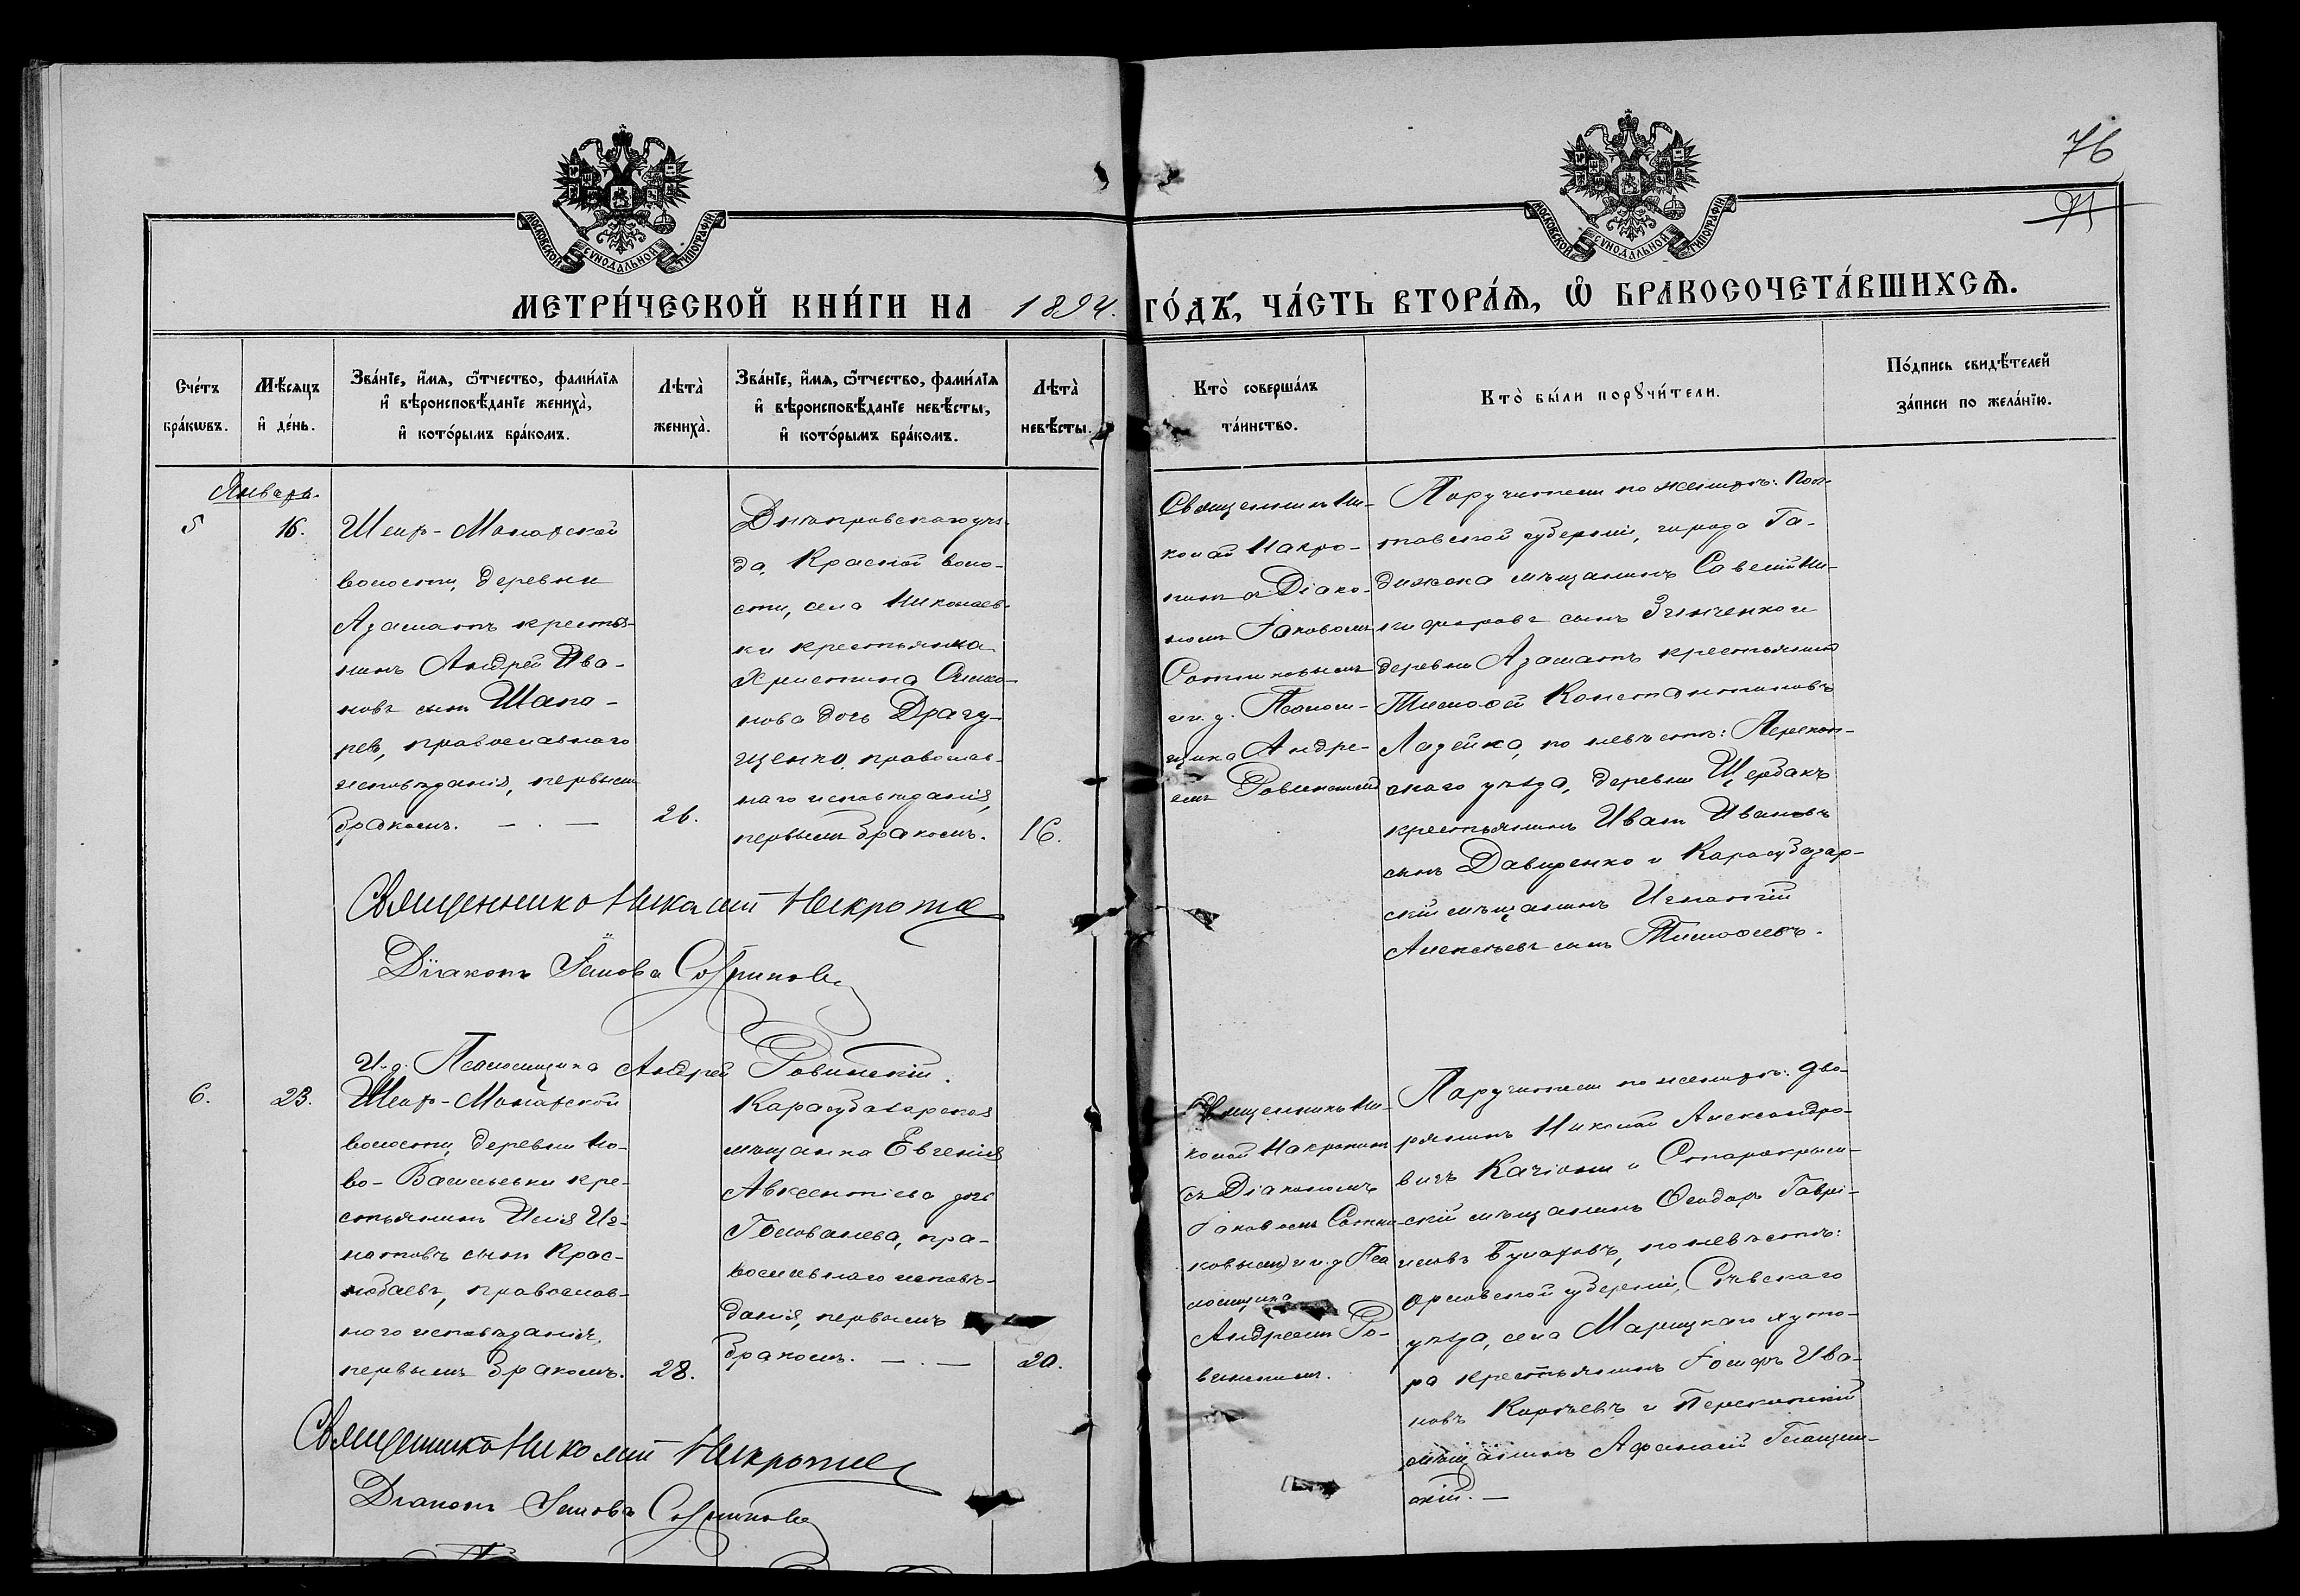 76
МОСКОВСКОЙ СѴНОДАЛЬНОЙ ТИПОГРАФІИ
МОСКОВСКОЙ СѴНОДАЛЬНОЙ ТИПОГРАФІИ
МЕТРИ́ЧЕСКОЙ КНИ́ГИ НА 1894. ГО́ДЪ, ЧА́СТЬ ВТОРА́Ѧ, Ѽ БРАКОСОЧЕТА́ВШИХСѦ.
Сче́тъ
бра́кѡвъ.
Мѣ́сяцъ
и҆ де́нь.
Зва́нїе, и҆́мѧ, ѻ҆́тчество, фамѝлїѧ
и҆ вѣроисповѣ́данїе женихà,
и҆ кото́рымъ бра́комъ.
Лѣтà
женихà.
Зва́нїе, и҆́мѧ, ѻ҆́тчество, фамѝлїѧ
и҆ вѣроисповѣ́данїе невѣ́сты,
и҆ кото́рымъ бра́комъ.
Лѣтà
невѣ́сты.
Кто̀ соверша́лъ
та́инство.
Кто̀ бы́ли порꙋчи́тели.
По́дпись свидѣ́телей
за́писи по жела́нїю.
Январь.
5
16.
Шейх-Монахской
волости, деревни
Азаматъ крестья-
нинъ Андрей Ива-
новъ сынъ Шапа-
ревъ, православнаго
исповѣданія, первымъ
бракомъ. — . —
26.
Днѣпровскаго уѣз-
да, Красной воло-
сти, села Николаев-
ки крестьянка
Христина Симо-
нова дочь Драгу-
щенко, православ-
наго исповѣданія,
первымъ бракомъ.
16.
Священникъ Ни-
колай
Діако-
номъ Іаковомъ
Сотниковымъ
и и. д. Псалом-
щика Андре-
емъ Ровинскимъ
Поручители по женихѣ: Пол-
тавской губерніи, города Га-
дяжска мѣщанинъ Савелій Ни-
кифоровъ сынъ Зинченко и
деревни Азаматъ крестьянинъ
Тимофей Константиновъ
Ладейка, по невѣстѣ: Перекоп-
скаго уѣзда, деревни Щербакъ
крестьянинъ Иванъ Ивановъ
сынъ Давиденко и Карасубазар-
скій мѣщанинъ Игнатій
Алексѣевъ сынъ Тимофеевъ.
Священникъ Николай
Діаконъ Іаковъ Сотниковъ
И. д. Псаломщика Андрей Ровинскій.
6.
23.
Шейх-Монахской
волости, деревни Но-
во-Васильевки кре-
стьянинъ Илія Иг-
натовъ сынъ Крас-
нобаевъ, православ-
наго исповѣданія,
первымъ бракомъ.
28.
Карасубазарская
мѣщанка Евгенія
Авксентіева дочь
Голованева, пра-
вославнаго исповѣ-
данія, первымъ
бракомъ. — . —
20.
Священникъ Ни-
колай
съ Діакономъ
Іаковомъ Сотни-
ковымъ и и. д. Пса-
ломщика
Андреемъ Ро-
винскимъ.
Поручители по женихѣ: дво-
рянинъ Николай Александро-
вичъ Качіони и Старокрым-
скій мѣщанинъ Ѳеодоръ Гаврі-
иловъ Булаховъ, по невѣстѣ:
Орловской губерніи, Сѣвскаго
уѣзда, села Марицкаго хуто-
ра крестьянинъ Іосифъ Ива-
новъ Корнѣевъ и Перекопскій
мѣщанинъ Афанасій
скій. —
Священникъ Николай
Діаконъ Іаковъ Сотниковъ